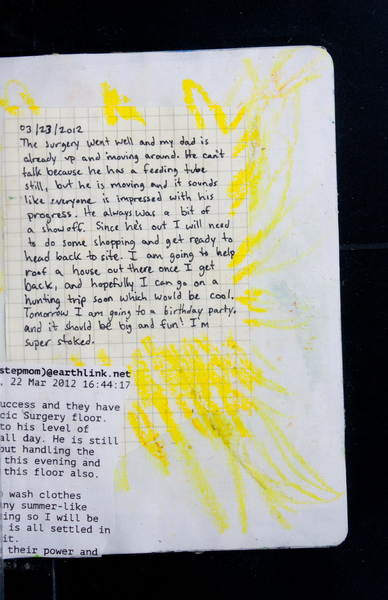 03/23/2012
The surgery went well and my dad is
already up and moving around. He can't
talk because he has a feeding tube
still, but he is moving and it sounds
like everyone is impressed with his
progress. He always was a bit of
a showoff. Since he's out I will need
to do some shopping and get ready to
head back to site. I am going to help
roof a house out there once I get
back, and hopefully I can go on a
hunting trip soon which would be cool.
Tomorrow I am going to a birthday party,
and it should be big and fun! I'm
super stoked.
stepmom)@earthlink.net
, 22 Mar 2012 16:44:17
uccess and they have
cic Surgery floor.
to his level of
all day. He is still
but handling the
this evening and
this floor also.
wash clothes
ny summer-like
ing so I will be
is all settled in
it.
their power and